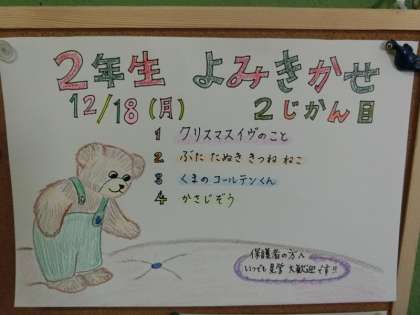 2年生 よみきかせ
12/18(月) 2じかん目
1 クリスマスイヴのこと
2 ぶた たぬき きつね ねこ
3 くまの コールテンくん
4 かさじぞう
保護者の方へ
いつでも 見学 大歓迎です!!